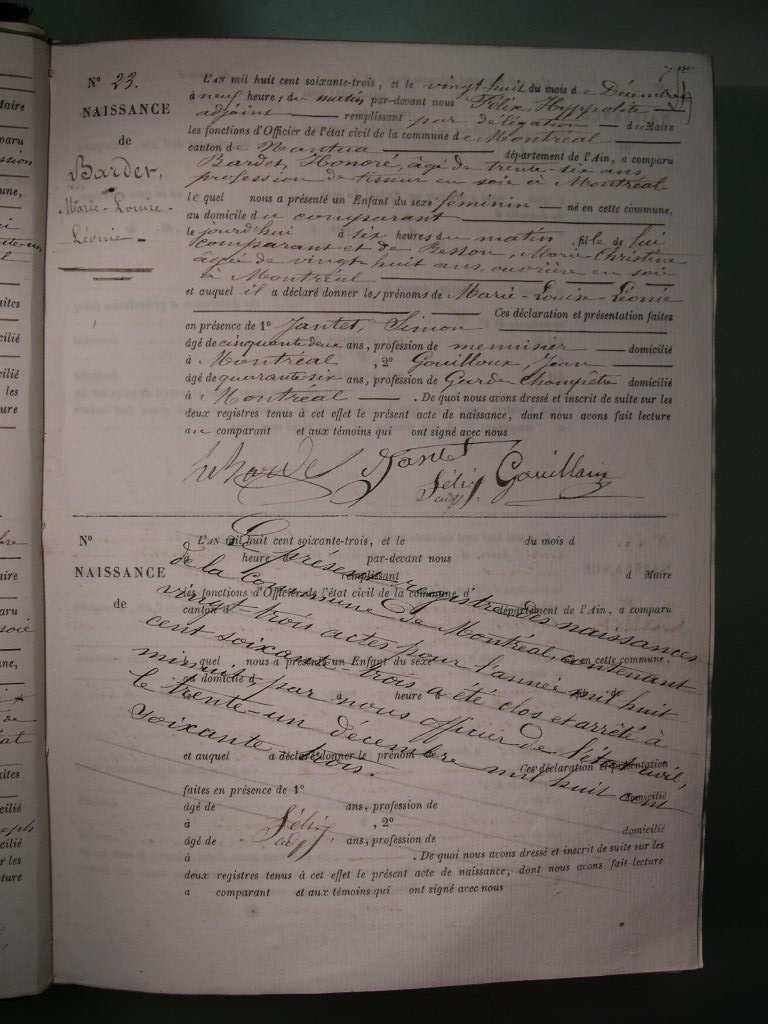 7me
N° 23.
NAISSANCE
de
Bardet,
Marie-Louise-
Léonie.
L'AN mil huit cent soixante-trois, et le vingt huit du mois de Décembre
à neuf heures du matin par-devant nous Félix, Hyppolite
adjoint remplissant par délégation du Maire
les fonctions d'Officier de l'état civil de la commune de Montréal
canton de Nantua département de l'Ain, a comparu
Bardet, Honoré, âgé de trente-six ans
profession de tisseur en soie à Montréal
lequel nous a présenté un Enfant du sexe féminin né en cette commune,
au domicile du comparant
le jourd'hui à six heures du matin, fille de lui
comparant et de Besson, Marie Christine
âgée de vingt huit ans, ouvrière en soie
à Montréal
et auquel il a déclaré donner les prénoms de Marie-Louise-Léonie
Ces déclaration et présentation faites
en présence de 1° Jantet, Simon
âgé de cinquante deux ans, profession de menuisier domicilié
à Montréal, 2° Gouilloux, Jean
âgé de quarante six ans, profession de Garde Champêtre domicilié
à Montréal. De quoi nous avons dressé et inscrit de suite sur les
deux registres tenus à cet effet le présent acte de naissance, dont nous avons fait lecture
au comparant et aux témoins qui ont signé avec nous
Jantet Gouilloux
Félix
adj.
N°
NAISSANCE
de
L'AN mil huit cent soixante-trois, et le du mois d
heure d par-devant nous
remplissant d Maire
les fonctions d'Officier de l'état civil de la commune d
canton d département de l'Ain, a comparu
lequel nous a présenté un Enfant du sexe né en cette commune.
au domicile d
à heure d fil d
et auquel a déclaré donner le prénom d
Ces déclaration et présentation
faites en présence de 1° domicilié
âgé de ans, profession de
à , 2° domicilié
âgé de ans, profession de
à . De quoi nous avons dressé et inscrit de suite sur les
deux registres tenus à cet effet le présent acte de naissance, dont nous avons fait lecture
a comparant et aux témoins qui ont signé avec nous
Le présent registre des naissances
de la Commune de Montréal, contenant
vingt-trois actes pour l'année mil huit
cent soixante-trois a été clos et arrêté à
minuit par nous officier de l'état civil,
le trente-un décembre mil huit cent
soixante trois.
Félix
adj.